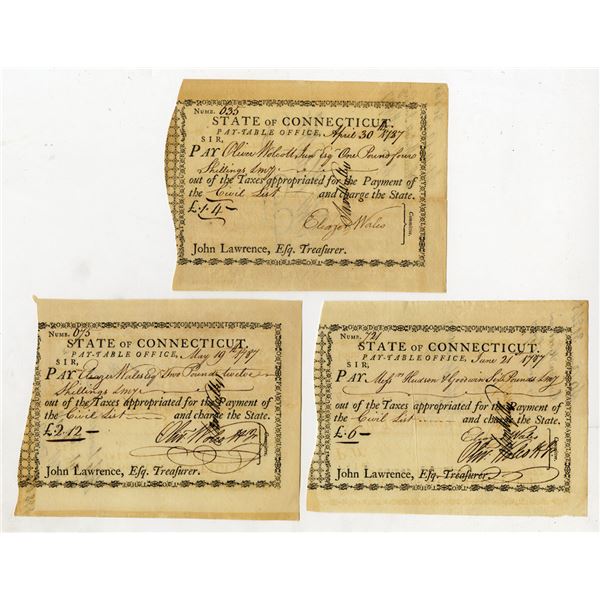 NUMB. 635
STATE OF CONNECTICUT.
PAY-TABLE OFFICE, April 30th 1787
SIR,
PAY Oliver Wolcott Jun Esq One Pound four
Shillings LMy
out of the Taxes appropriated for the Payment of
the Civil List and charge the State.
£1.4.-
Eleazer Wales
Committee.
John Lawrence, Esq. Treasurer.
NUMB. 675
STATE OF CONNECTICUT.
PAY-TABLE OFFICE, May 19th 1787
SIR,
PAY Eleazer Wales Esq Two Pounds twelve
Shillings LMy
out of the Taxes appropriated for the Payment of
the Civil List and charge the State.
£2.12.-
John Lawrence, Esq. Treasurer.
NUMB. 721
STATE OF CONNECTICUT.
PAY-TABLE OFFICE, June 21st 1787
SIR,
PAY Messrs Hudson & Goodwin Six Pounds LMy
out of the Taxes appropriated for the Payment of
the Civil List and charge the State.
£.6.-
Wales
John Lawrence, Esq. Treasurer.